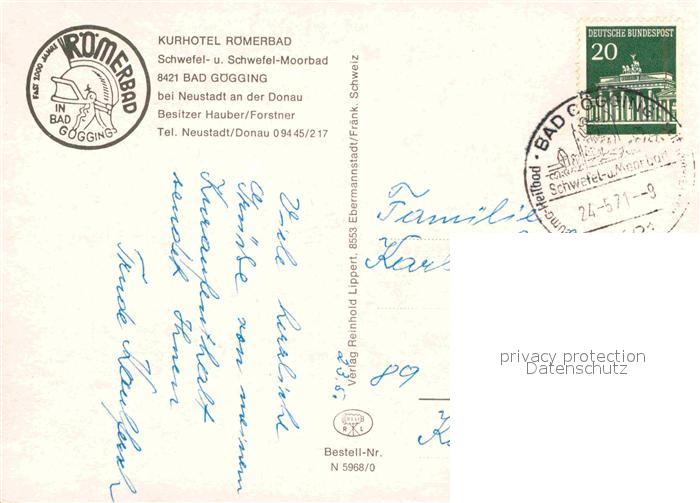 FAST 2000 JAHRE
RÖMERBAD
IN
BAD
GÖGGING
KURHOTEL RÖMERBAD
Schwefel- u. Schwefel-Moorbad
8421 BAD GÖGGING
bei Neustadt an der Donau
Besitzer Hauber/Forstner
Tel. Neustadt/Donau 0 94 45/2 17
DEUTSCHE BUNDESPOST
20
BAD GÖGGING
Schwefel-u. Moorbad
24-5.71--8
Viele herzliche
Grüße von meinem
Kuraufenthalt
sendet Ihnen
Trude
23.5.
Verlag Reinhold Lippert, 8553 Ebermannstadt/Fränk. Schweiz
Familie
89
R L
Bestell-Nr.
N 5968/0
privacy protection
Datenschutz